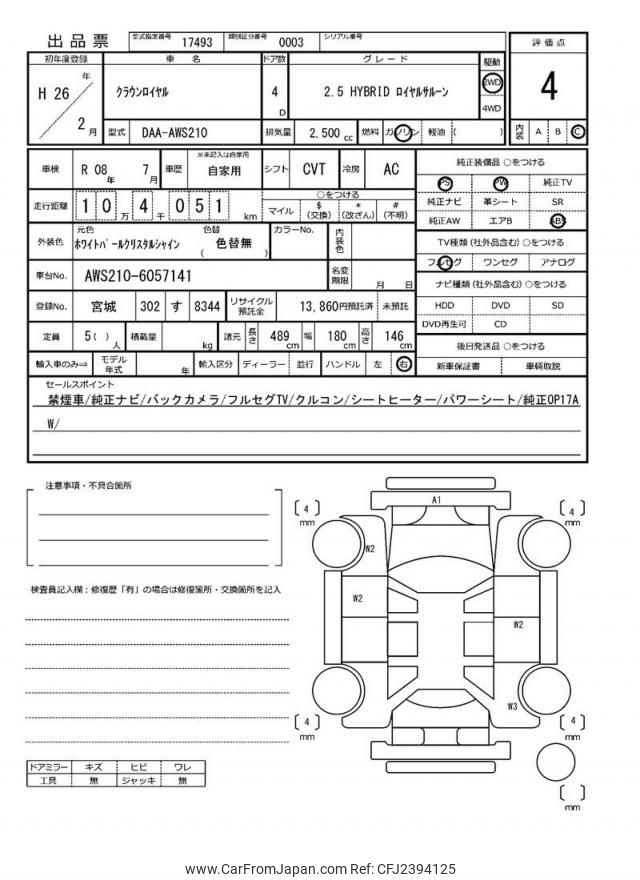 出品票
型式指定番号 17493 類別区分番号 0003 シリアル番号
初年度登録 車名 ドア数 グレード 駆動 評価点
H 26 年 2 月 クラウンロイヤル 4 D 2.5 HYBRID ロイヤルサルーン 2WD 4WD 4
型式 DAA-AWS210 排気量 2,500 cc 燃料 ガソリン 軽油 ( ) 内装 A B C
車検 R 08 年 7 月 車歴 ※未記入は自家用 自家用 シフト CVT 冷房 AC
走行距離 1 0 万 4 千 0 5 1 km ○をつける
マイル $ (交換) * (改ざん) # (不明)
外装色 元色 ホワイトパールクリスタルシャイン 色替 ( 色替無 ) カラーNo. 内装色
車台No. AWS210-6057141 名変期限 月 日
登録No. 宮城 302 す 8344 リサイクル預託金 13,860円預託済 未預託
定員 5 ( ) 人 積載量 kg 諸元 長さ 489 cm 幅 180 cm 高さ 146 cm
輸入車のみ⇒ モデル年式 年 輸入区分 ディーラー 並行 ハンドル 左 右
純正装備品 ○をつける
PS PW 純正TV
純正ナビ 革シート SR
純正AW エアB ABS
TV種類 (社外品含む) ○をつける
フルセグ ワンセグ アナログ
ナビ種類 (社外品含む) ○をつける
HDD DVD SD
DVD再生可 CD
後日発送品 ○をつける
新車保証書 車輌取説
セールスポイント
禁煙車/純正ナビ/バックカメラ/フルセグTV/クルコン/シートヒーター/パワーシート/純正OP17A
W/
注意事項・不具合箇所
検査員記入欄：修復歴「有」の場合は修復箇所・交換箇所を記入
ドアミラー キズ ヒビ ワレ
工具 無 ジャッキ 無
A1
[ 4 ] mm
[ 4 ] mm
W2
W2
W2
W3
[ 4 ] mm
[ 4 ] mm
[ ] mm
www.CarFromJapan.com Ref: CFJ2394125